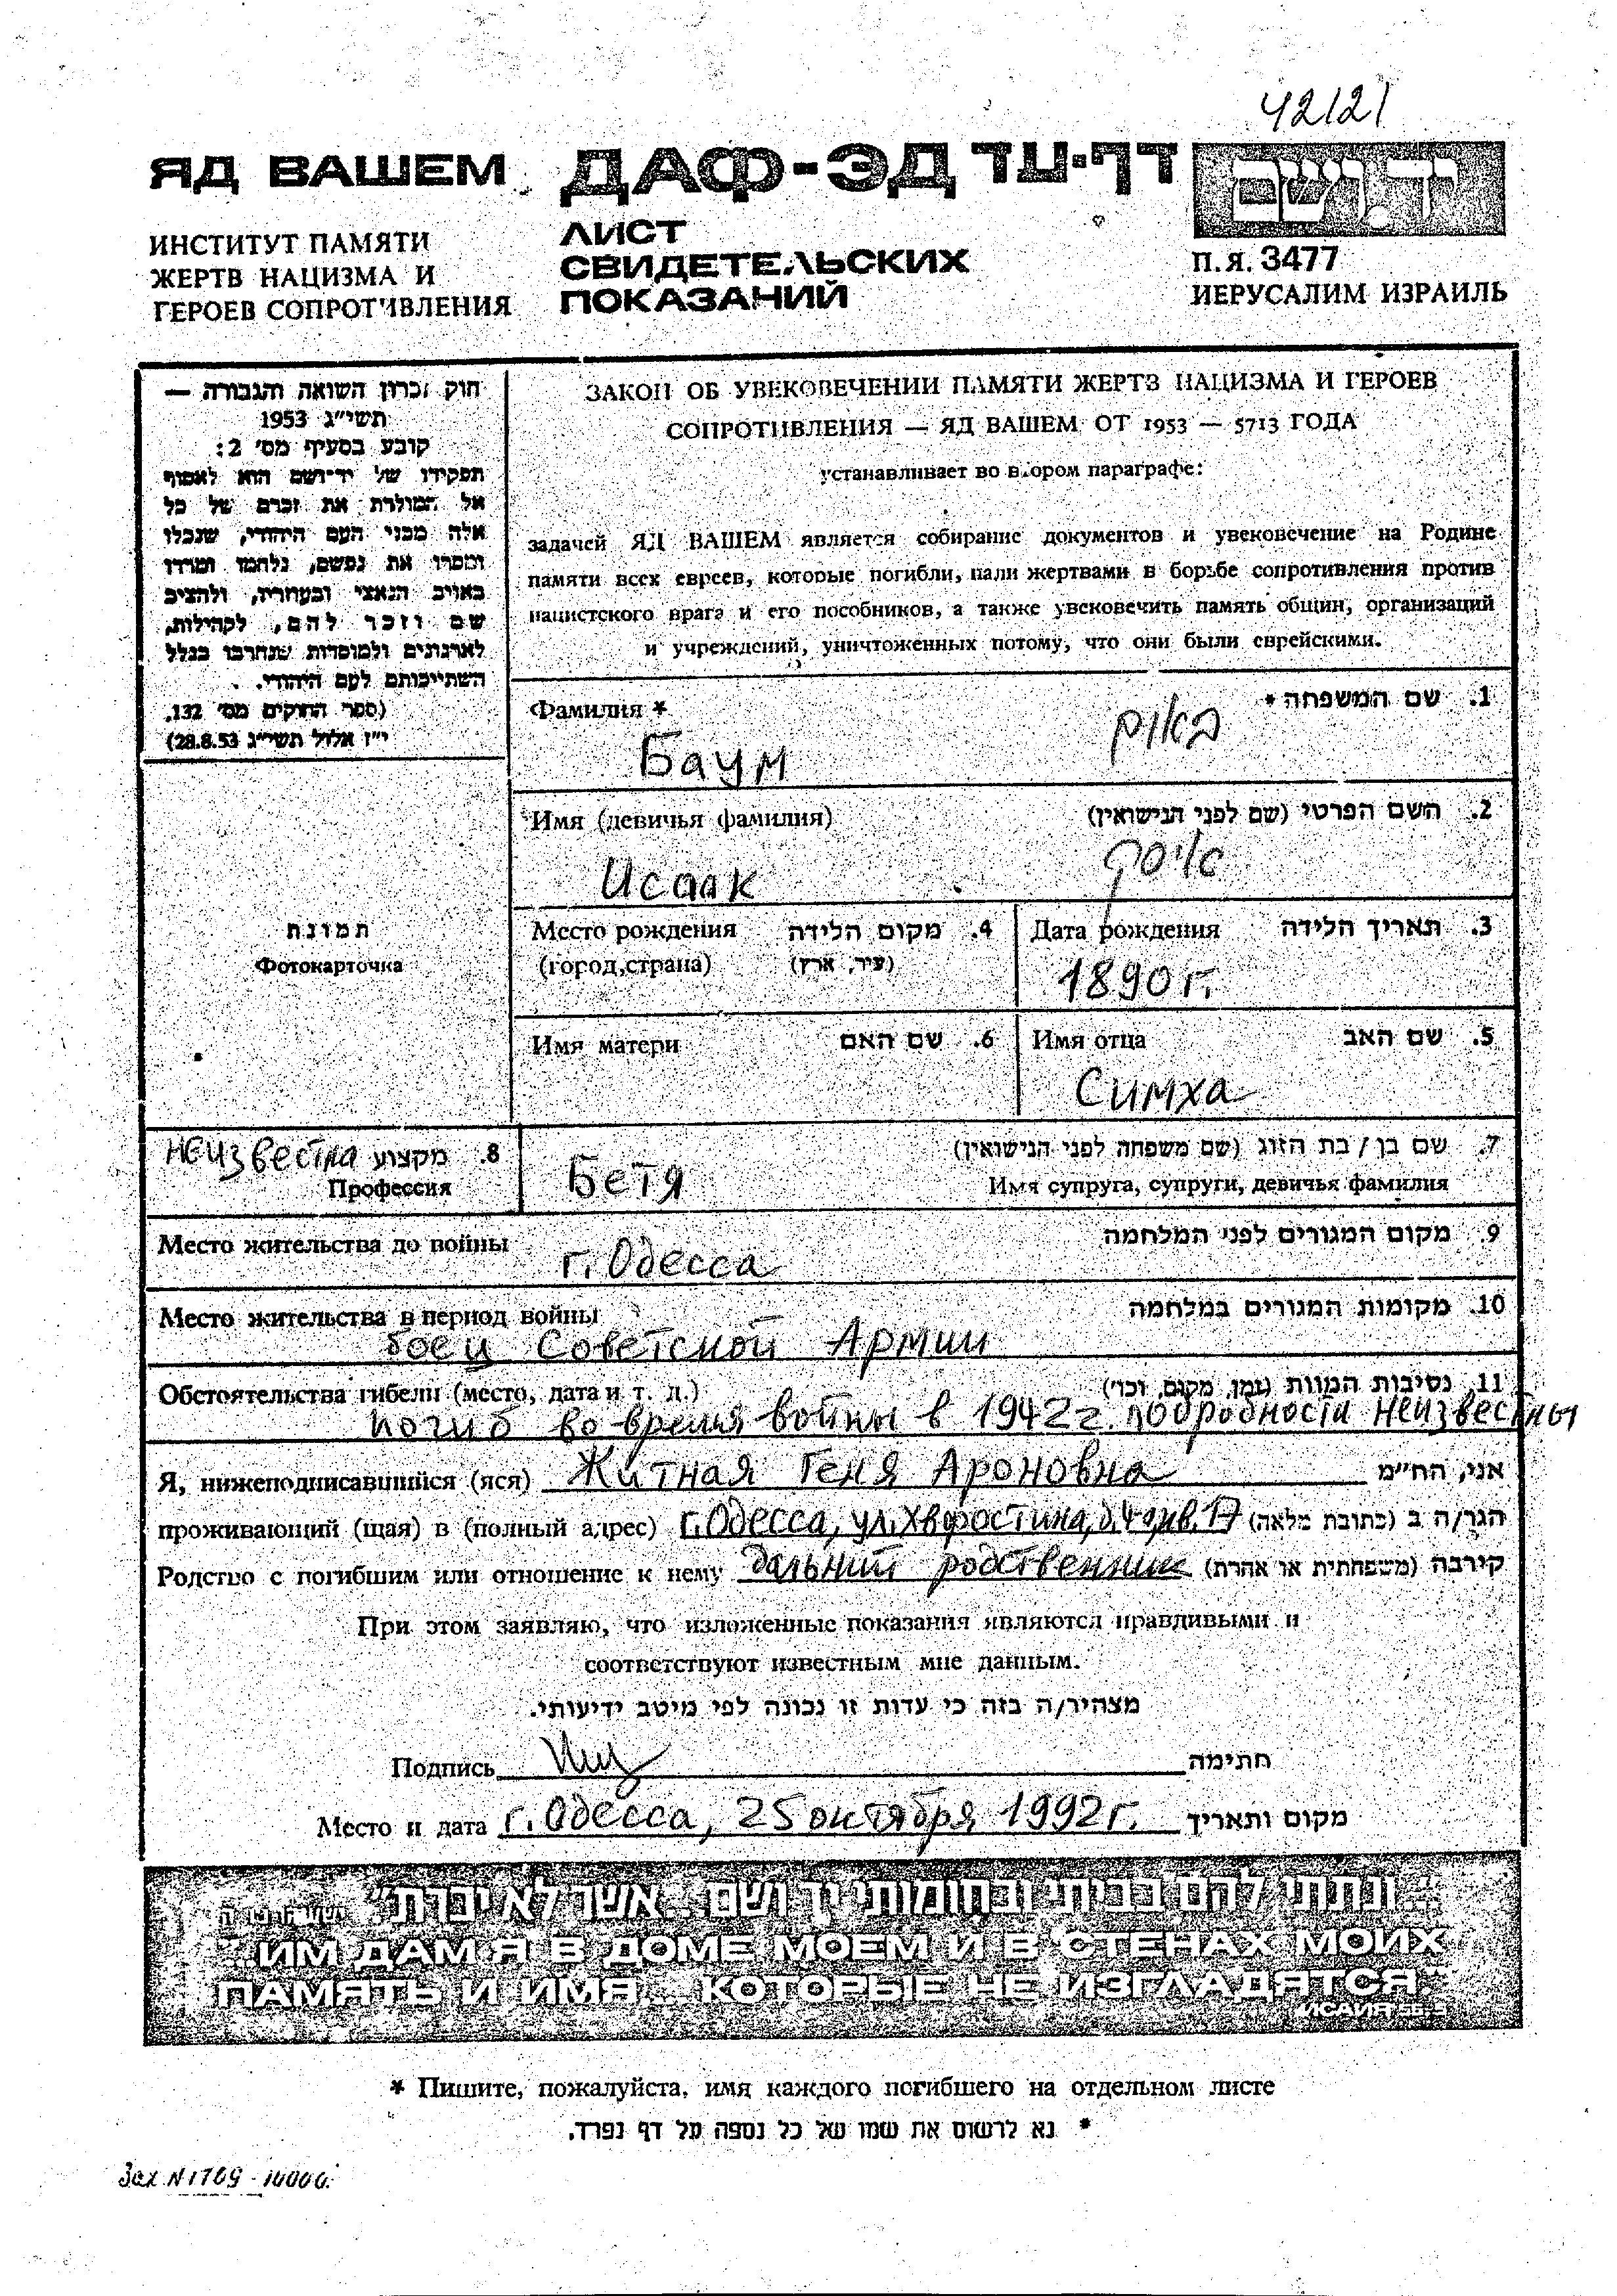 42121
ЯД ВАШЕМ
ДАФ-ЭД דף-עד
יד ושם
ИНСТИТУТ ПАМЯТИ
ЖЕРТВ НАЦИЗМА И
ГЕРОЕВ СОПРОТИВЛЕНИЯ
ЛИСТ
СВИДЕТЕЛЬСКИХ
ПОКАЗАНИЙ
П.Я. 3477
ИЕРУСАЛИМ ИЗРАИЛЬ
חוק זכרון השואה והגבורה —
תשי״ג 1953
קובע בסעיף מס׳ 2:
תפקידו של יד־ושם הוא לאסוף
אל המולדת את זכרם של כל
אלה מבני העם היהודי, שנפלו
ומסרו את נפשם, נלחמו ומרדו
באויב הנאצי ובעוזריו, ולהציב
שם וזכר להם, לקהילות,
לארגונים ולמוסדות שנחרבו בגלל
השתייכותם לעם היהודי.
(ספר החוקים מס׳ 132,
י״ז אלול תשי״ג 28.8.53)
ЗАКОН ОБ УВЕКОВЕЧЕНИИ ПАМЯТИ ЖЕРТВ НАЦИЗМА И ГЕРОЕВ
СОПРОТИВЛЕНИЯ — ЯД ВАШЕМ ОТ 1953 — 5713 ГОДА
устанавливает во втором параграфе:
задачей ЯД ВАШЕМ является собирание документов и увековечение на Родине
памяти всех евреев, которые погибли, пали жертвами в борьбе сопротивления против
нацистского врага и его пособников, а также увековечить память общин, организаций
и учреждений, уничтоженных потому, что они были еврейскими.
Фамилия * 1. שם המשפחה *
Баум באום
Имя (девичья фамилия) 2. השם הפרטי (שם לפני הנישואין)
Исаак איסק
תמונת
Фотокарточка
Место рождения 4. מקום הלידה
(город,страна) (עיר, ארץ)
Дата рождения 3. תאריך הלידה
1890 г.
Имя матери 6. שם האם
Имя отца 5. שם האב
Симха
неизвестна 8. מקצוע
Профессия
Бетя
7. שם בן / בת הזוג (שם משפחה לפני הנישואין)
Имя супруга, супруги, девичья фамилия
Место жительства до войны 9. מקום המגורים לפני המלחמה
г. Одесса
Место жительства в период войны 10. מקומות המגורים במלחמה
боец Советской Армии
Обстоятельства гибели (место, дата и т. д.) 11. נסיבות המוות (זמן, מקום, וכו׳)
погиб во время войны в 1942 г. подробности неизвестны
Я, нижеподписавшийся (яся) Житная Геня Ароновна אני, הח״מ
проживающий (щая) в (полный адрес) г. Одесса, ул. Хворостина, д. 4 кв. 17 הגר/ה ב (כתובת מלאה)
Родство с погибшим или отношение к нему дальний родственник קירבה (משפחתית או אחרת)
При этом заявляю, что изложенные показания являются правдивыми и
соответствуют известным мне данным.
מצהיר/ה בזה כי עדות זו נכונה לפי מיטב ידיעותי.
Подпись חתימה
Место и дата г. Одесса, 25 октября 1992 г. מקום ותאריך
„...ונתתי להם בביתי ובחומותי יד ושם... אשר לא יכרת״
"...ИМ ДАМ Я В ДОМЕ МОЕМ И В СТЕНАХ МОИХ
ПАМЯТЬ И ИМЯ... КОТОРЫЕ НЕ ИЗГЛАДЯТСЯ."
ИСАИЯ 56-5
* Пишите, пожалуйста, имя каждого погибшего на отдельном листе
* נא לרשום את שמו של כל נספה על דף נפרד.
Зак N 1709 - 10000.